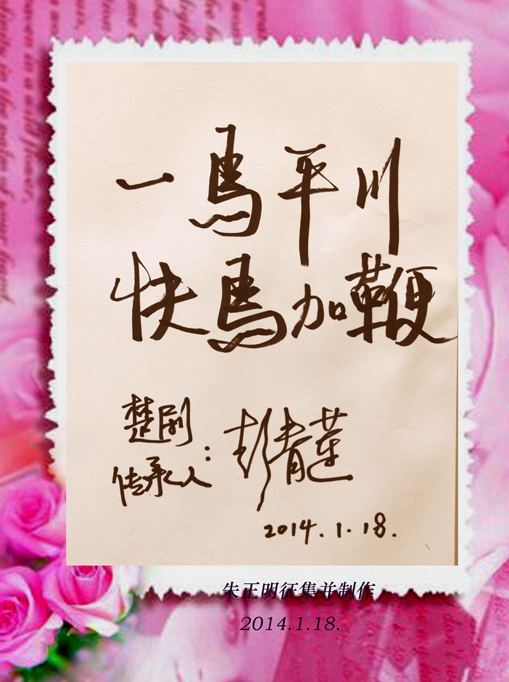 一馬平川
快馬加鞭
楚剧
传承人：彭青莲
2014.1.18.
朱正明征集并制作
2014.1.18.